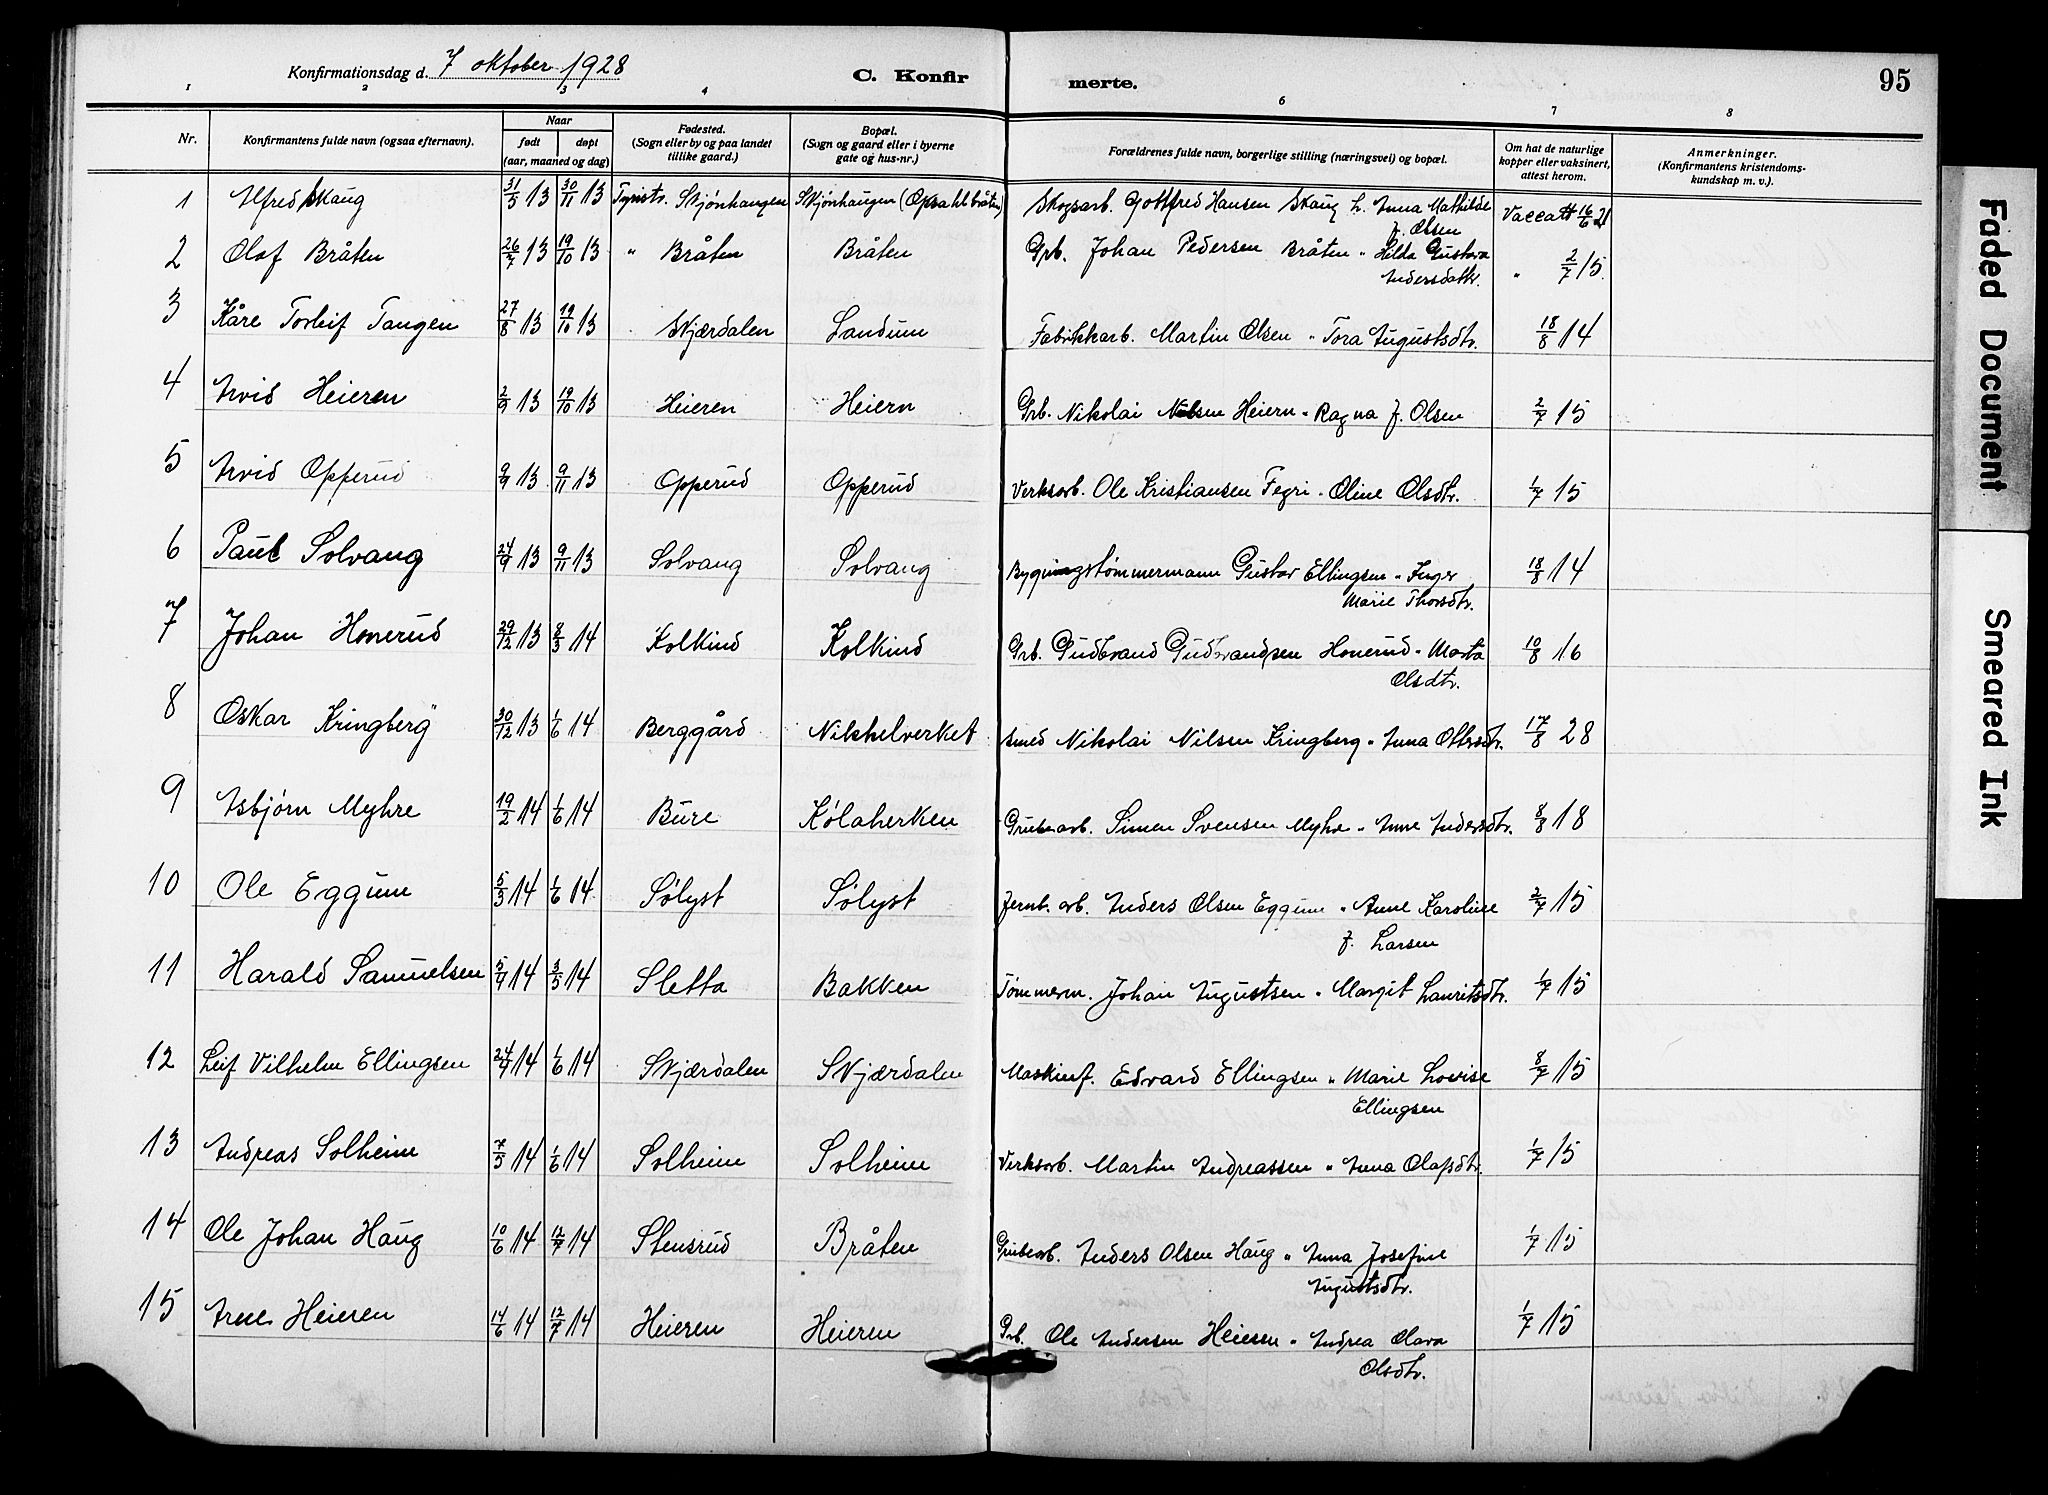 Konfirmationsdag d. 7 oktober 1928
C. Konfir merte. 95
1 2 3 4 6 7 8
Nr. Konfirmantens fulde navn (ogsaa efternavn). Naar født døpt (aar, maaned og dag) Fødested. (Sogn eller by og paa landet tillike gaard.) Bopæl. (Sogn og gaard eller i byerne gate og hus-nr.) Forældrenes fulde navn, borgerlige stilling (næringsvei) og bopæl. Om hat de naturlige kopper eller vaksinert, attest herom. Anmerkninger. (Konfirmantens kristendoms-kundskap m. v.).
1 Alfred Skaug 31/5 13 30/11 13 Tyristr. Skjønhaugen Skjønhaugen (Opsahlbråten) Skogsarb. Gottfred Hansen Skaug h. Anna Mathilde f. Olsen Vacca tt 16/6 21
2 Olaf Bråten 26/7 13 19/10 13 " Bråten Bråten Grb. Johan Pedersen Bråten " Hilda Gustava Andersdattr. " 2/7 15.
3 Kåre Torleif Tangen 27/8 13 19/10 13 " Skjærdalen Landum Fabrikkarb. Martin Olsen " Tora Augustsdtr. 18/8 14
4 Arvid Heieren 2/9 13 19/10 13 Heieren Heiern Grb. Nikolai Nilsen Heiern " Ragna f. Olsen 2/7 15
5 Arvid Opperud 9/9 13 9/11 13 Opperud Opperud Verksarb. Ole Kristiansen Fegri " Oline Olsdtr. 1/7 15
6 Paul Solvang 24/9 13 9/11 13 Solvang Solvang Bygningstømmermann Gustav Ellingsen " Inger Marie Thorsdtr. 18/8 14
7 Johan Honerud 29/12 13 8/3 14 Kolkind Kolkind Grb. Gudbrand Gudbrandsen Honerud " Marta Olsdtr. 10/8 16
8 Oskar Kringberg 30/12 13 1/6 14 Berggård Nikkelverket Smed Nikolai Nilsen Kringberg " Anna Ottersdtr. 17/8 28
9 Asbjørn Myhre 19/2 14 1/6 14 Bure Kølaherken Grubearb. Simen Svensen Myhre " Anne Andersdtr. 8/8 18
10 Ole Eggum 5/3 14 1/6 14 Sølyst Sølyst Jernb. arb. Anders Olsen Eggum " Anne Karoline f. Larsen 2/7 15
11 Harald Samuelsen 5/4 14 3/5 14 Sletta Bakken Tømmerm. Johan Augustsen " Margit Lauritsdtr. 1/7 15
12 Leif Vilhelm Ellingsen 24/4 14 1/6 14 Skjærdalen Skjærdalen Maskinf. Edvard Ellingsen " Marie Lovise Ellingsen 8/7 15
13 Andreas Solheim 7/5 14 1/6 14 Solheim Solheim Verksarb. Martin Andreassen " Anna Olafsdtr. 1/7 15
14 Ole Johan Haug 10/6 14 12/7 14 Stensrud Bråten Grubearb. Anders Olsen Haug " Anna Josefine Augustsdtr. 1/7 15
15 Arne Heieren 14/6 14 12/7 14 Heieren Heieren Grb. Ole Andersen Heieren " Andrea Olava Olsdtr. 1/7 15
Faded Document
Smeared Ink